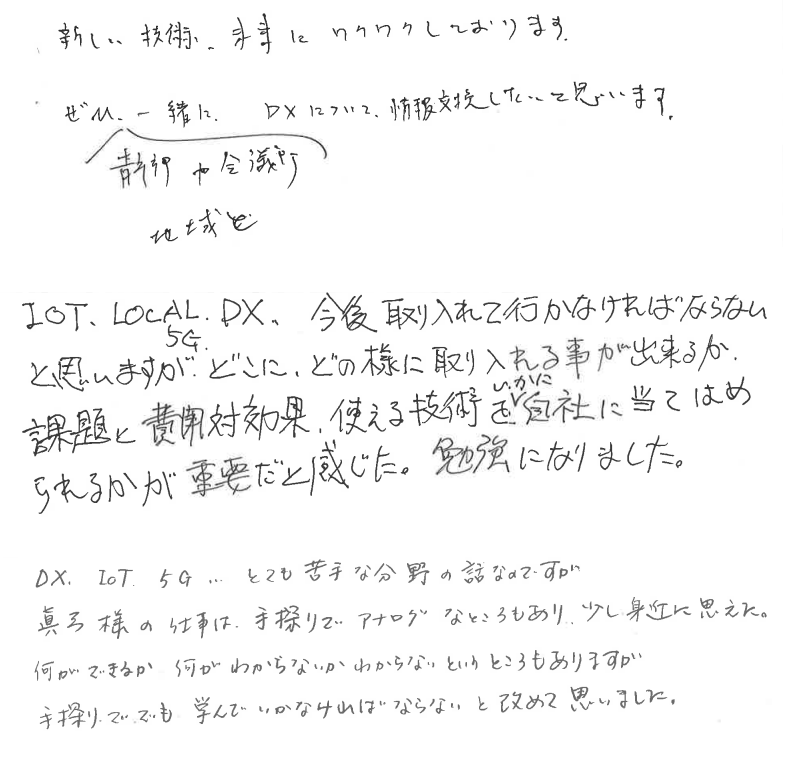 新しい技術、未来にワクワクしております。
ぜひ、一緒に、DXについて、情報交換したいと思います。
青年部や会議所
地域と
IOT、LOCAL、DX、今後取り入れて行かなければならない
5G、
と思いますが、どこに、どの様に取り入れる事が出来るか、
いかに
課題と費用対効果、使える技術を自社に当てはめ
られるかが重要だと感じた。勉強になりました。
DX、IoT、5G…とても苦手な分野の話なのですが
眞弓様の仕事は、手探りでアナログなところもあり、少し身近に思えた。
何ができるか何がわからないかわからないというところもありますが
手探りででも学んでいかなければならないと改めて思いました。